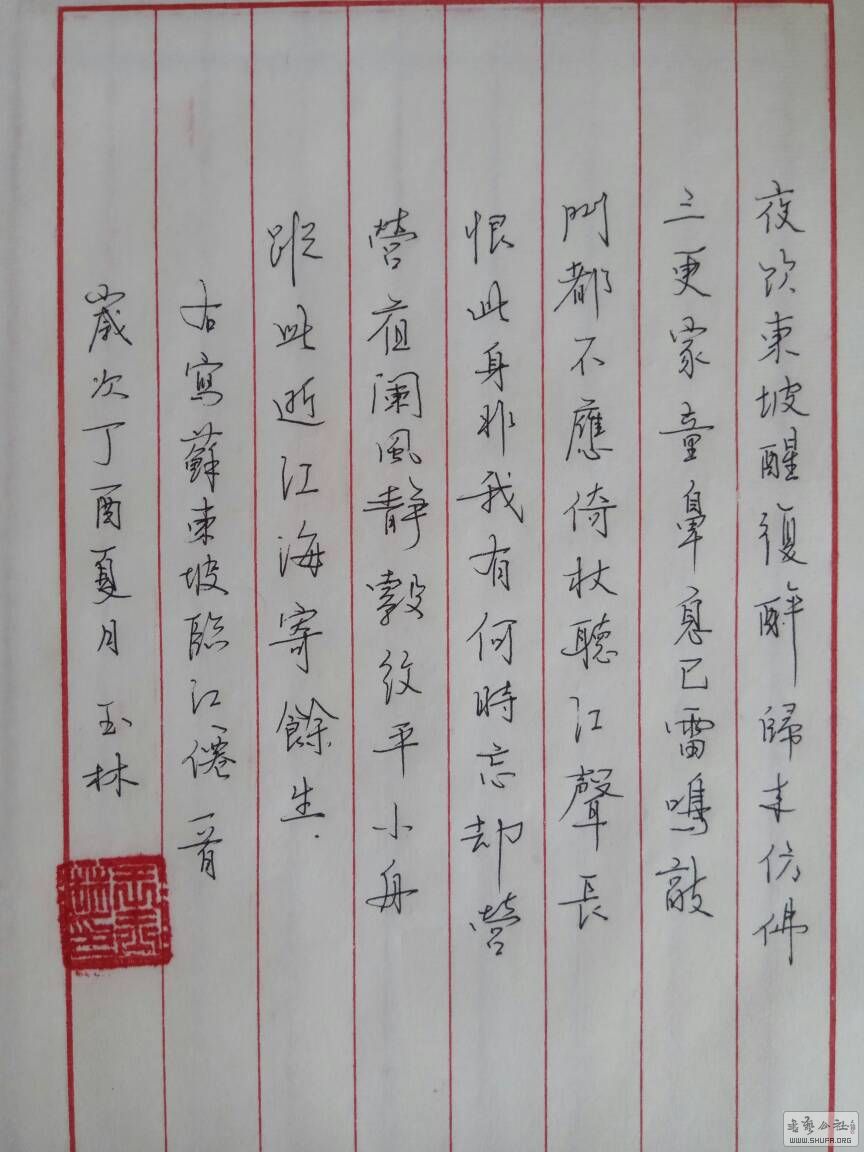 夜饮東坡醒復醉歸来仿佛
三更家童鼻息已雷鳴敲
門都不應倚杖聽江聲長
恨此身非我有何時忘却營
營夜闌風靜縠紋平小舟
從此逝江海寄餘生
右寫蘇東坡臨江僊一首
歲次丁酉夏月 玉林
王玉林印
書藝公社
WWW.SHUFA.ORG